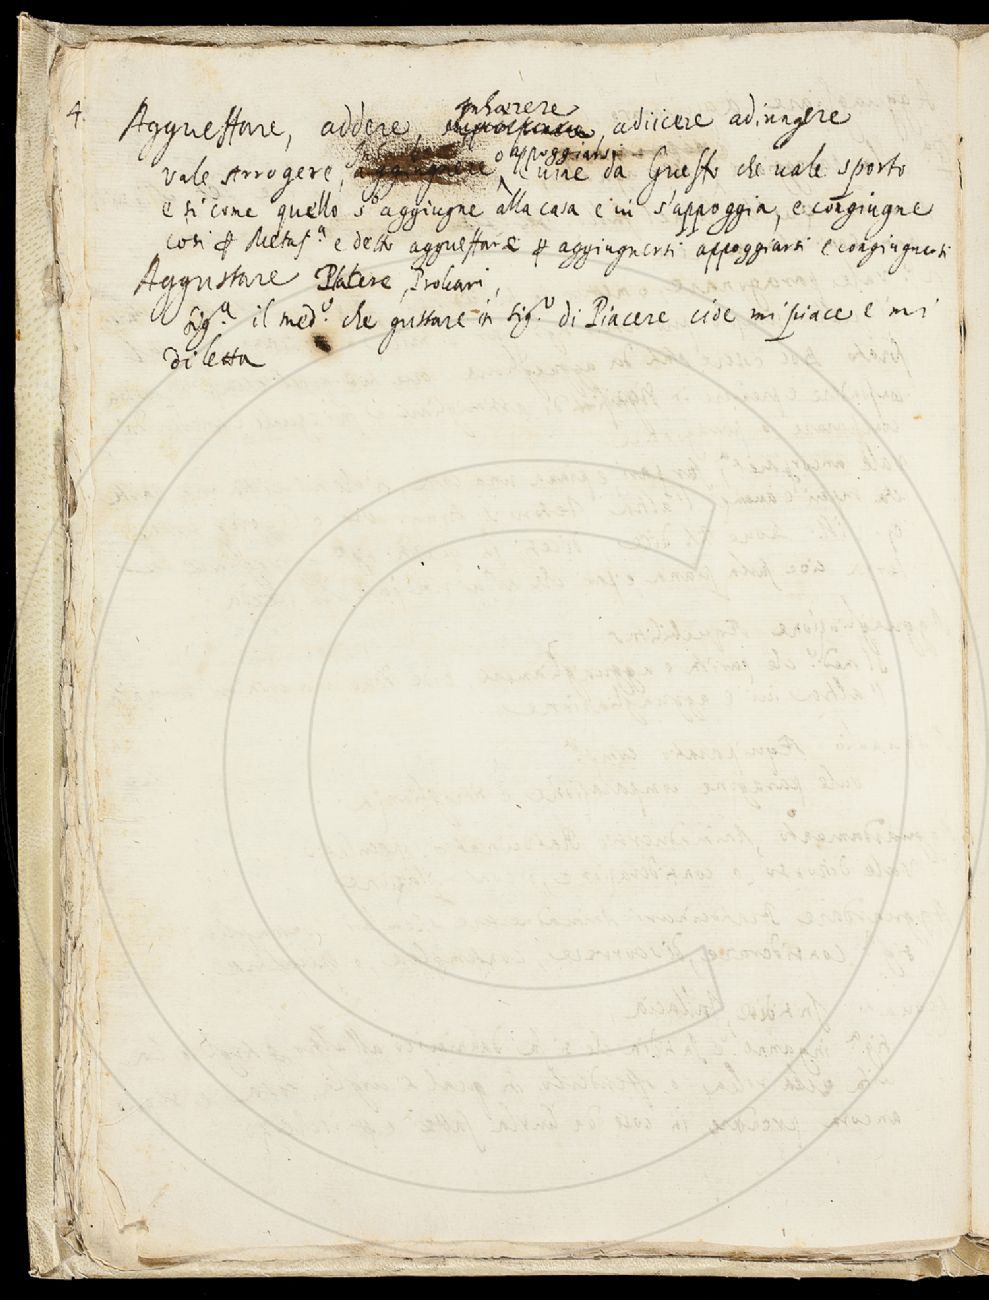 4.
Aggueffare, addere, inhærere, adiicere adiungere
vale arrogere, aggiugnere o appoggiarsi e vine da Gueffo che vale sporto
e si come quello s'aggiugne alla casa e in s'appoggia, e congiugne
cosi p Metaf.a e detto aggueffare p aggiugnersi appoggiarsi e congiugnersi
Aggustare Placere, Probari,
sig.a il med.o che gustare in sig.o di Piacere cioe mi piace e mi
diletta